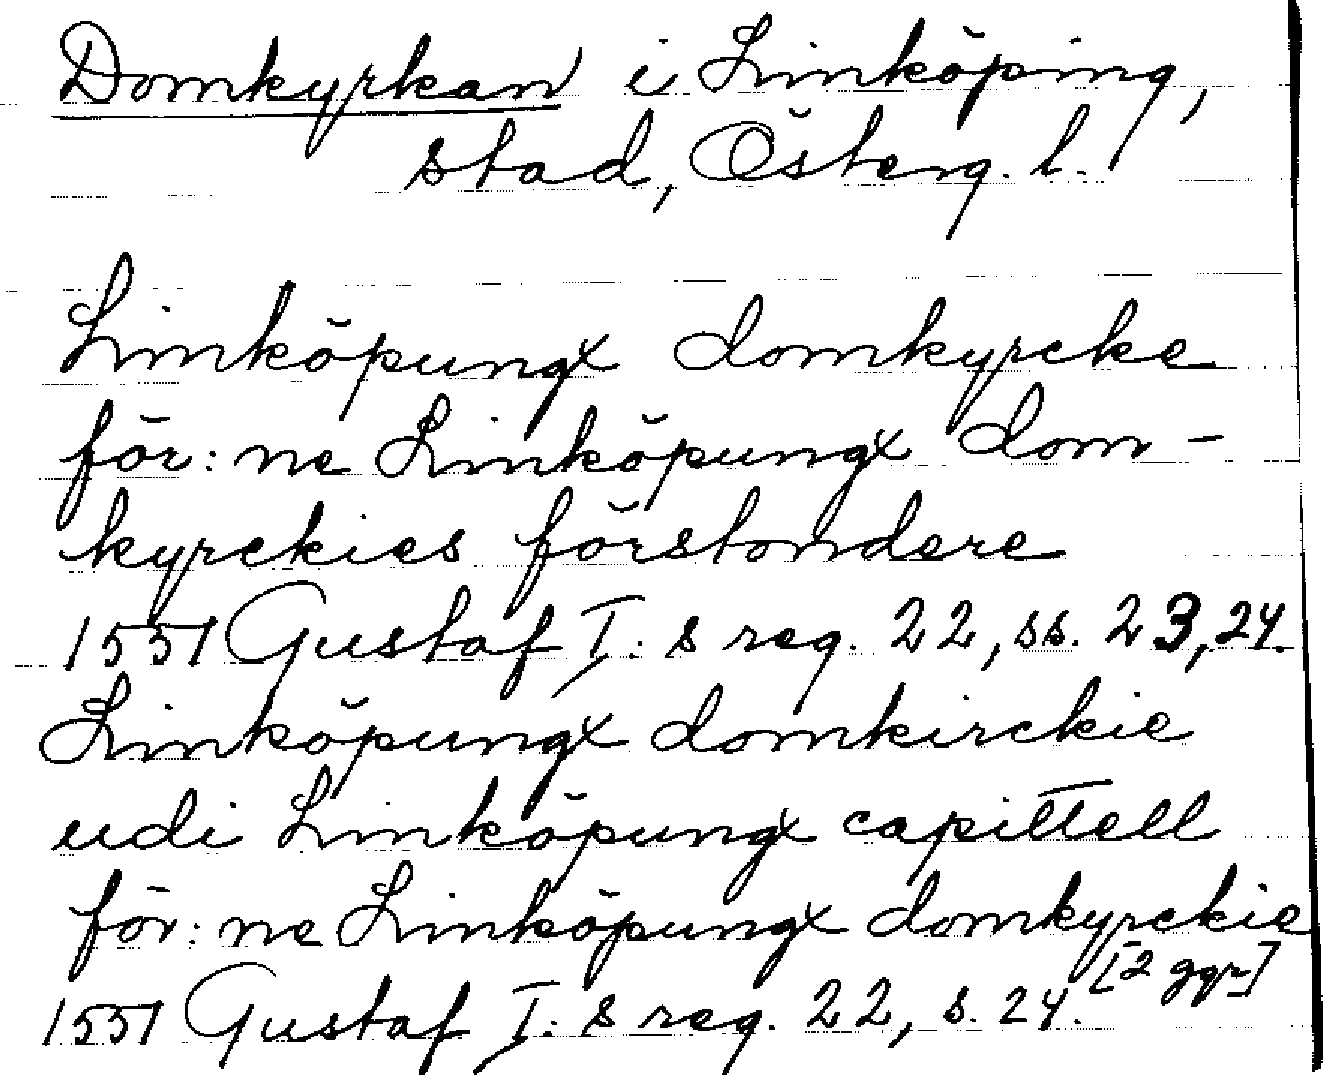 Domkyrkan i Linköping,
stad, Österg. l.
Linköpungx domkyrcke
för: ne Linköpungx dom-
kyrckies förstondere
1551 Gustaf I: s reg. 22, ss. 23, 24.
Linköpungx domkirckie
udi Linköpungx capittell
för: ne Linköpungx domkyrckie
[2 ggr]
1551 Gustaf I: s reg. 22, s. 24.